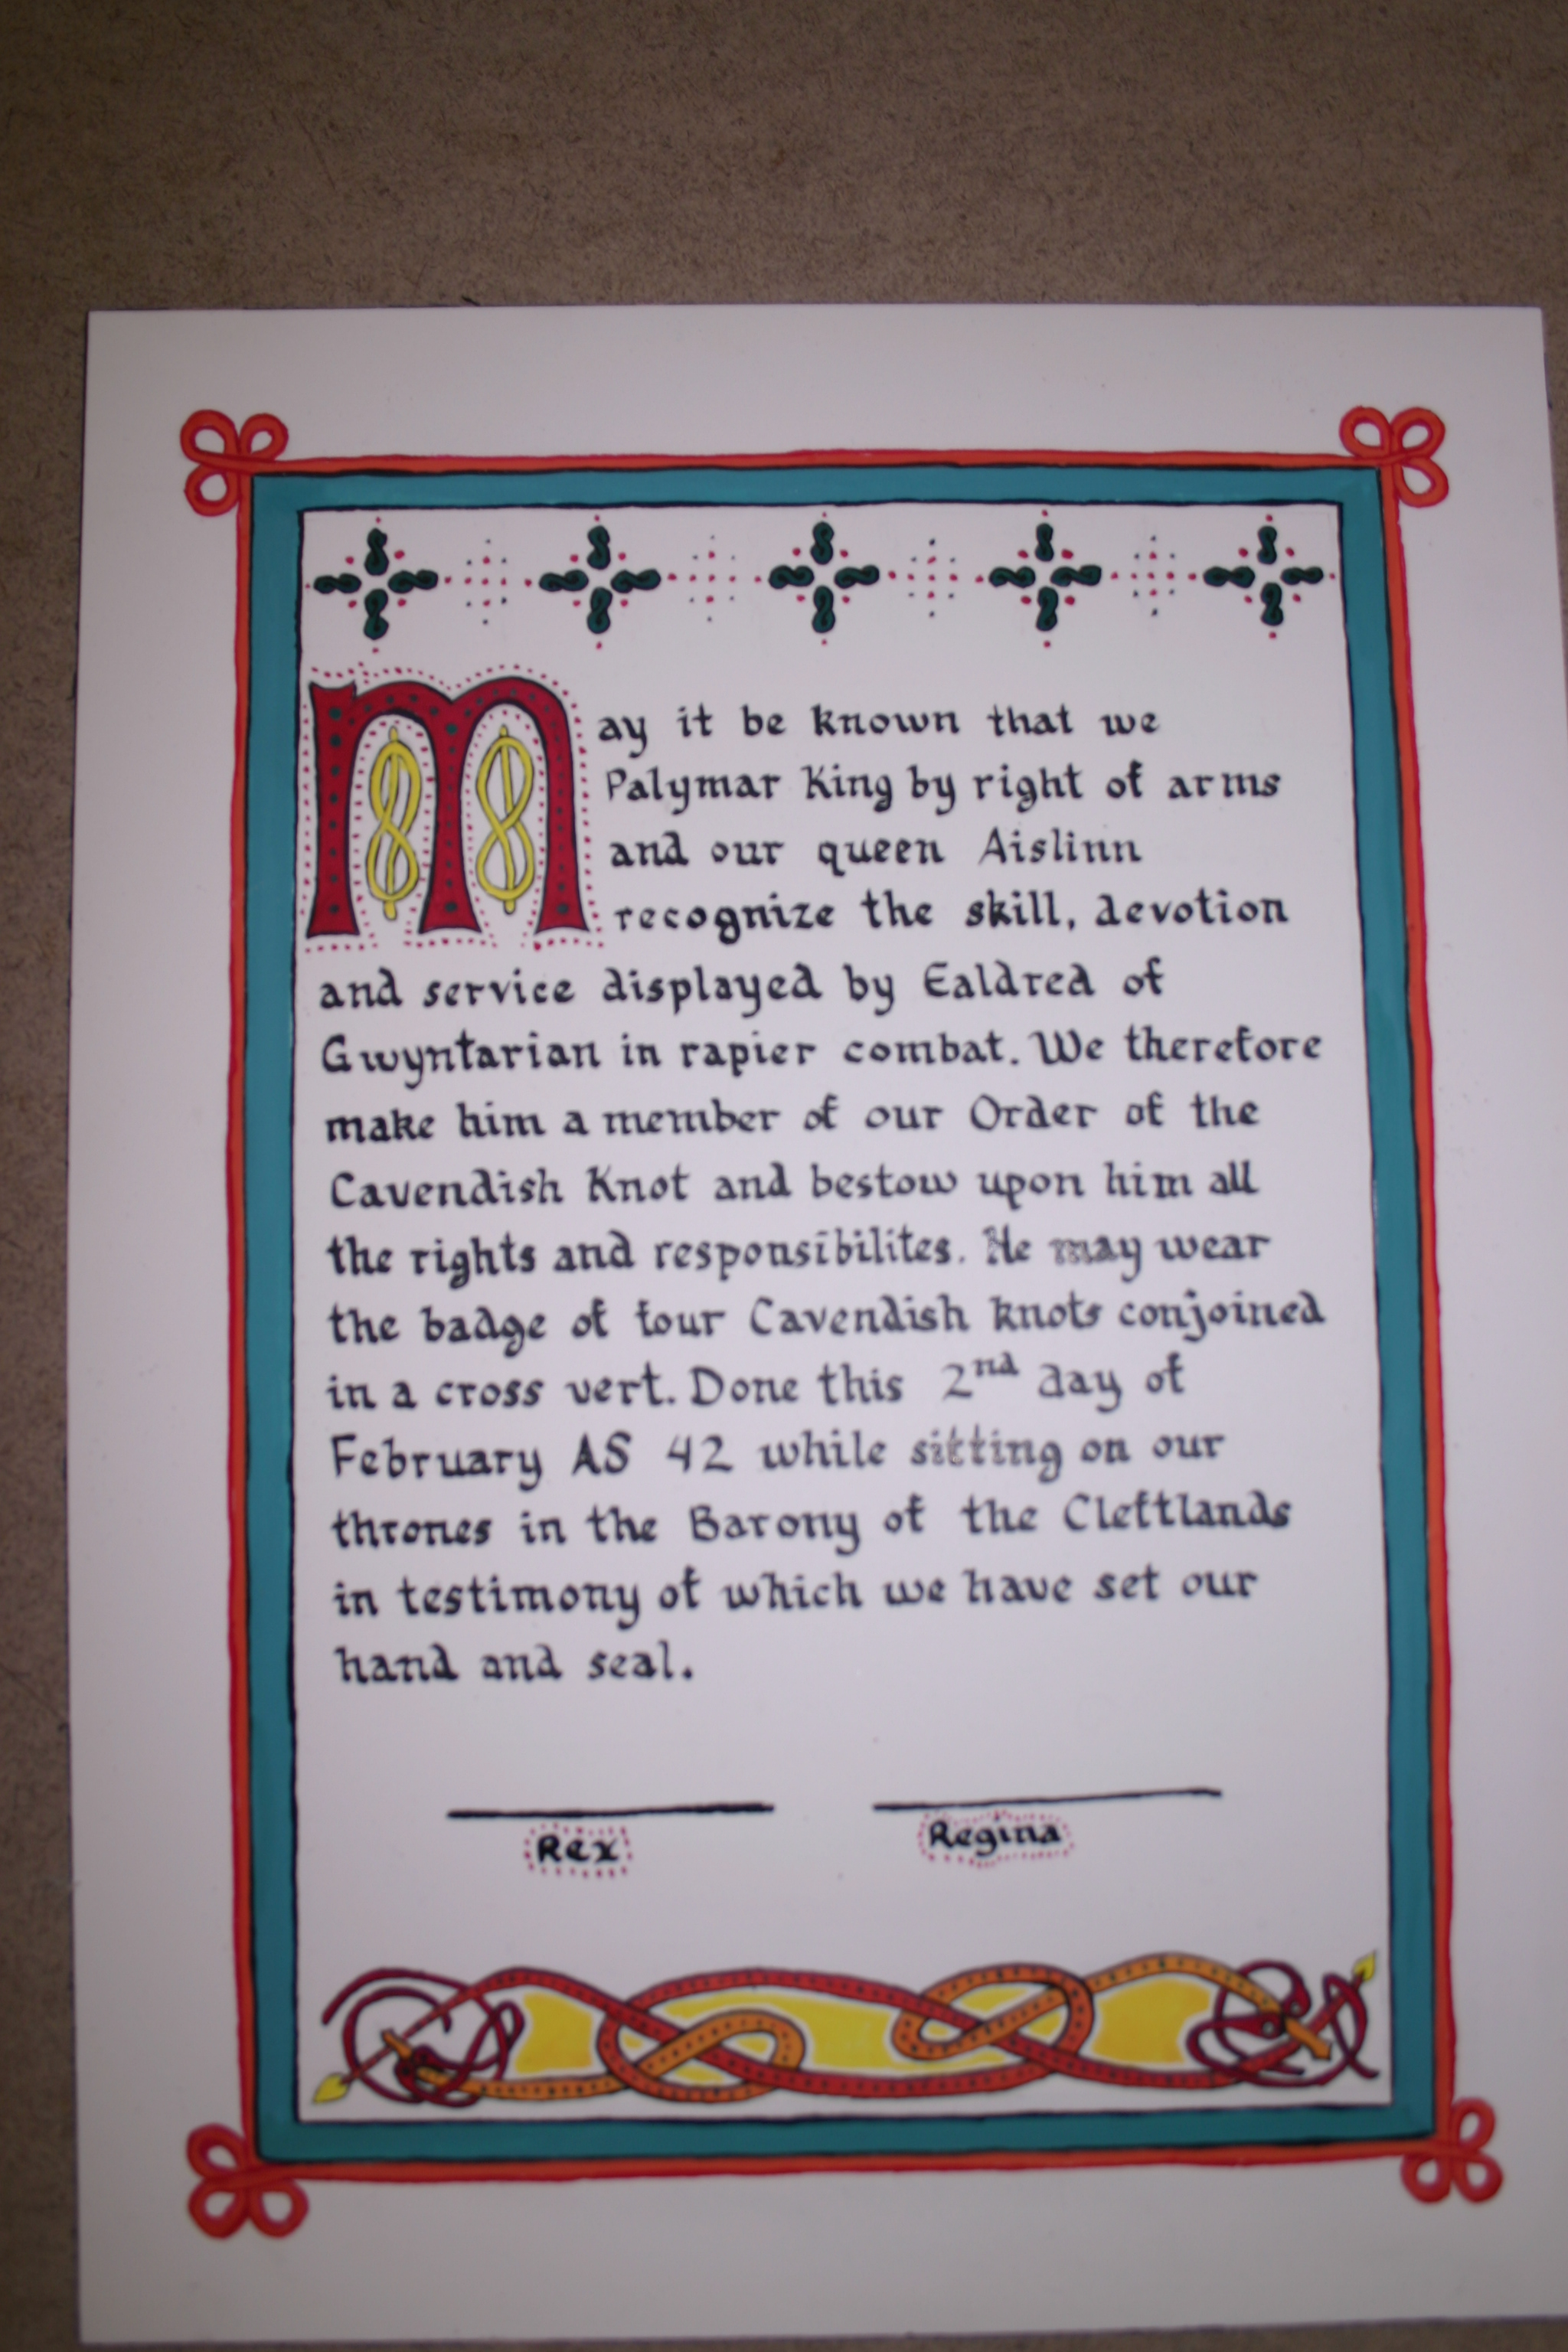 May it be known that we
Palymar King by right of arms
and our queen Aislinn
recognize the skill, devotion
and service displayed by Ealdred of
Gwyntarian in rapier combat. We therefore
make him a member of our Order of the
Cavendish Knot and bestow upon him all
the rights and responsibilites. He may wear
the badge of four Cavendish knots conjoined
in a cross vert. Done this 2nd day of
February AS 42 while sitting on our
thrones in the Barony of the Cleftlands
in testimony of which we have set our
hand and seal.
Rex Regina